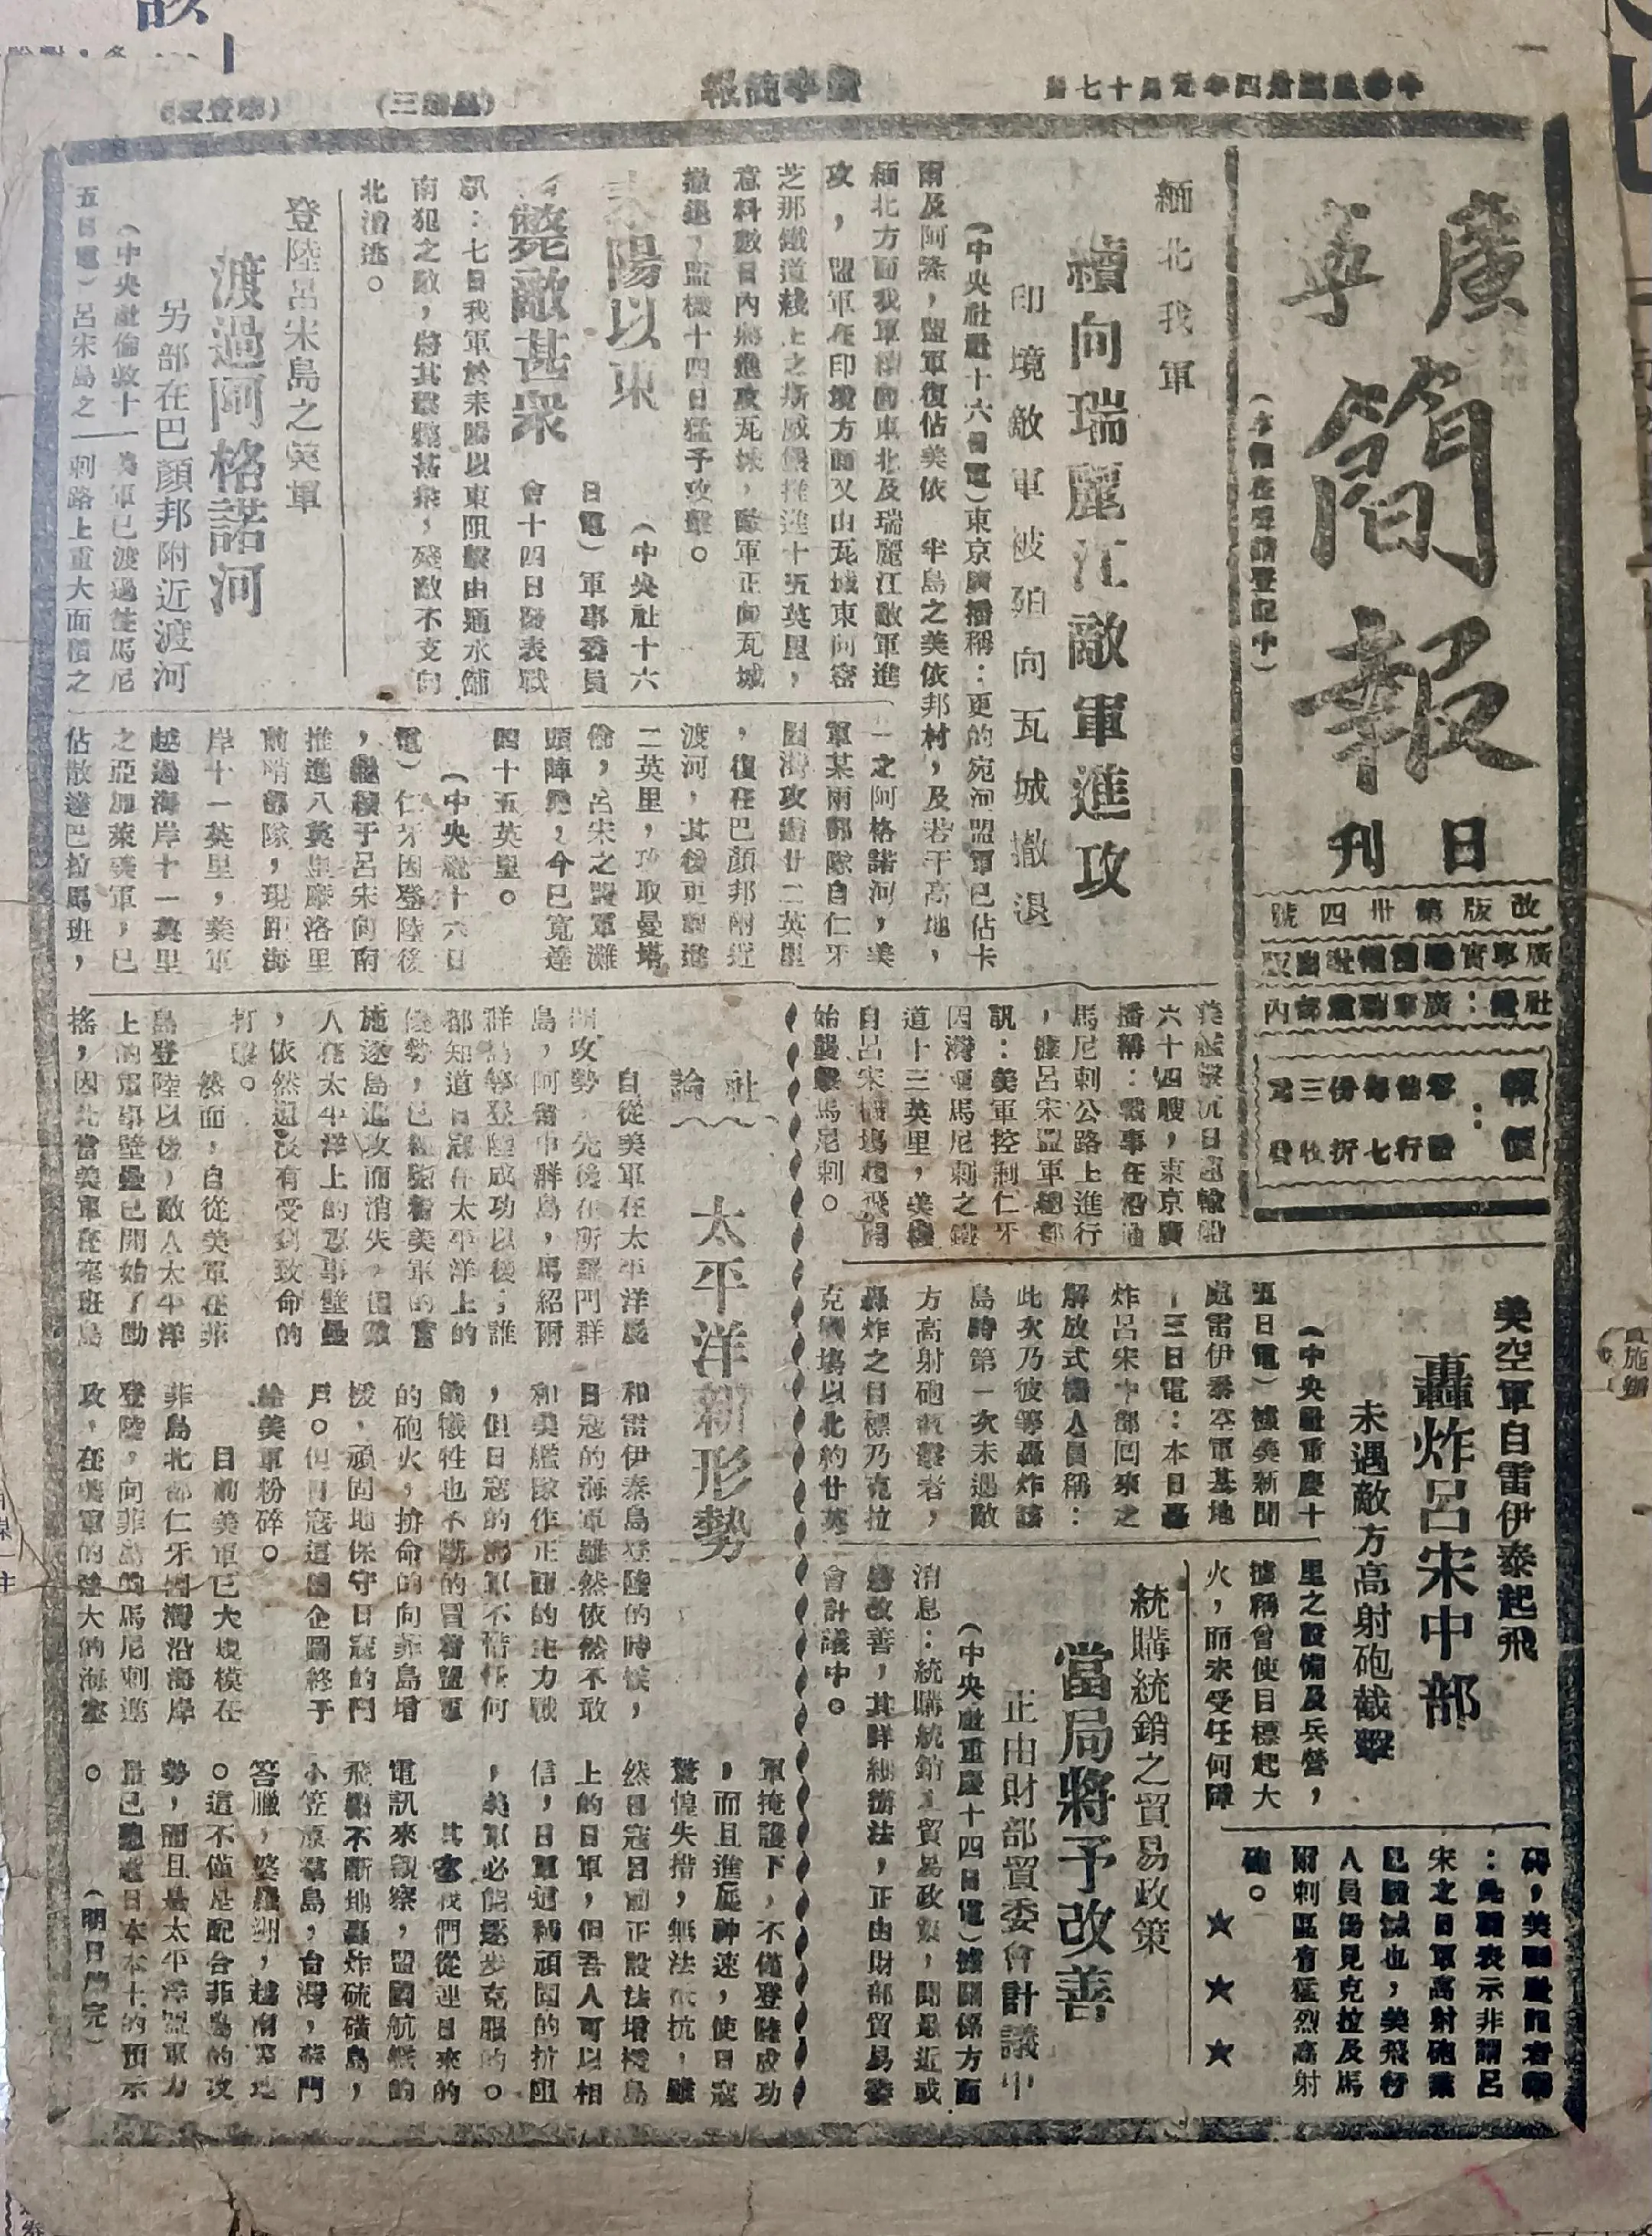 中華民國卅四年元月十七日
廣寧簡報
(星期三)
廣寧簡報
日刊
(本報在呈請登記中)
改版第卅四號
社址:廣寧
報價:
零售每份三元
緬北我軍
續向瑞麗江敵軍進攻
印境敵軍被殲向瓦城撤退
電)東京廣播稱:更的宛河盟軍已佔卡
半島之美依邦村,及若干高地,
緬北方面我軍
東北及瑞麗江敵軍進
攻,盟軍在印境方面又由瓦城東向密
芝那鐵道綫上之斯威堡推進十五英里,
意料數日內將進攻瓦城,敵軍正向瓦城
撤退,盟機十四日猛予攻擊。
耒陽以東
斃敵甚衆
(中央社十六
日電)軍事委員
會十四日發表戰
訊:七日我軍於耒陽以東阻擊由通水舖
南犯之敵,將其擊斃甚衆,殘敵不支向
北潰逃。
登陸呂宋島之美軍
渡過阿格諾河
另部在巴顏邦附近渡河
五日電)呂宋島之
美軍已渡過往馬尼
刺路上重大面積之
一之阿格諾河,美
軍某兩部隊自仁牙
因灣攻進廿二英里
,復在巴顏邦附近
渡河,其後更前進
二英里,攻取曼塔
倫,呂宋之盟軍灘
頭陣地,今已寬達
四十五英里。
(中央社十六日
電)仁牙因登陸後
,繼續于呂宋向南
推進八英里摩洛里
前哨部隊,現距海
岸十一英里,美軍
越過海岸十一英里
之亞加萊美軍,已
佔散達巴拉馬班,
美艦擊沉日運輸船
六十四艘,東京廣
播稱:戰事在沿通
馬尼刺公路上進行
,據呂宋盟軍總部
訊:美軍控制仁牙
因灣通馬尼刺之鐵
道十三英里,美機
自呂宋機場起飛開
始襲擊馬尼刺。
美空軍自雷伊泰起飛
轟炸呂宋中部
未遇敵方高射砲截擊
(中央社重慶十
五日電)據美新聞
處雷伊泰空軍基地
十三日電:本日轟
炸呂宋中部回來之
解放式機人員稱:
此次乃彼等轟炸該
島時第一次未遇敵
方高射砲截擊者,
轟炸之目標乃克拉
克機場以北約廿英
里之設備及兵營,
據稱曾使目標起大
火,而未受任何障
碍,美聯社記者稱
:此顯表示非謂呂
宋之日軍高射砲業
已毀滅也,美飛行
人員仍見克拉及馬
尼刺區有猛烈高射
砲。
★ ★ ★
統購統銷之貿易政策
當局將予改善
正由財部貿委會計議中
(中央社重慶十四日電)據關係方面
消息:統購統銷之貿易政策,聞最近或
將改善,其詳細辦法,正由財部貿易委
會計議中。
社論
太平洋新形勢
自從美軍在太平洋展
開攻勢,先後在所羅門群
島,阿留申群島,馬紹爾
群島等登陸成功以後,誰
都知道日寇在太平洋上的
優勢,已經隨着美軍的實
施逐島進攻而消失,但敵
人在太平洋上的軍事壁壘
,依然還沒有受到致命的
打擊。
然而,自從美軍在菲
島登陸以後,敵人太平洋
上的軍事壁壘已開始了動
搖,因此當美軍在塞班島
和雷伊泰島登陸的時候,
日寇的海軍雖然依然不敢
和美艦隊作正面的主力戰
,但日寇的海軍不惜任何
的犧牲也不斷的冒着盟軍
的砲火,拚命的向菲島增
援,頑固地保守日寇的門
戶。但日寇這個企圖終于
給美軍粉碎。
目前美軍已大規模在
菲島北部仁牙因灣沿海岸
登陸,向菲島的馬尼刺進
攻,在美軍的強大的海空
軍掩護下,不僅登陸成功
,而且進展神速,使日寇
驚惶失措,無法抵抗,雖
然日寇目前正設法增援島
上的日軍,但吾人可以相
信,日軍這種頑固的抗阻
,美軍必能逐步克服的。
其次我們從連日來的
電訊來觀察,盟國航艦的
飛機不斷地轟炸硫磺島,
小笠原群島,台灣,廈門
答臘,婆羅洲,越南等地
。這不僅是配合菲島的攻
勢,而且是太平洋盟軍力
量已迫近日本本土的預示
。(明日續完)